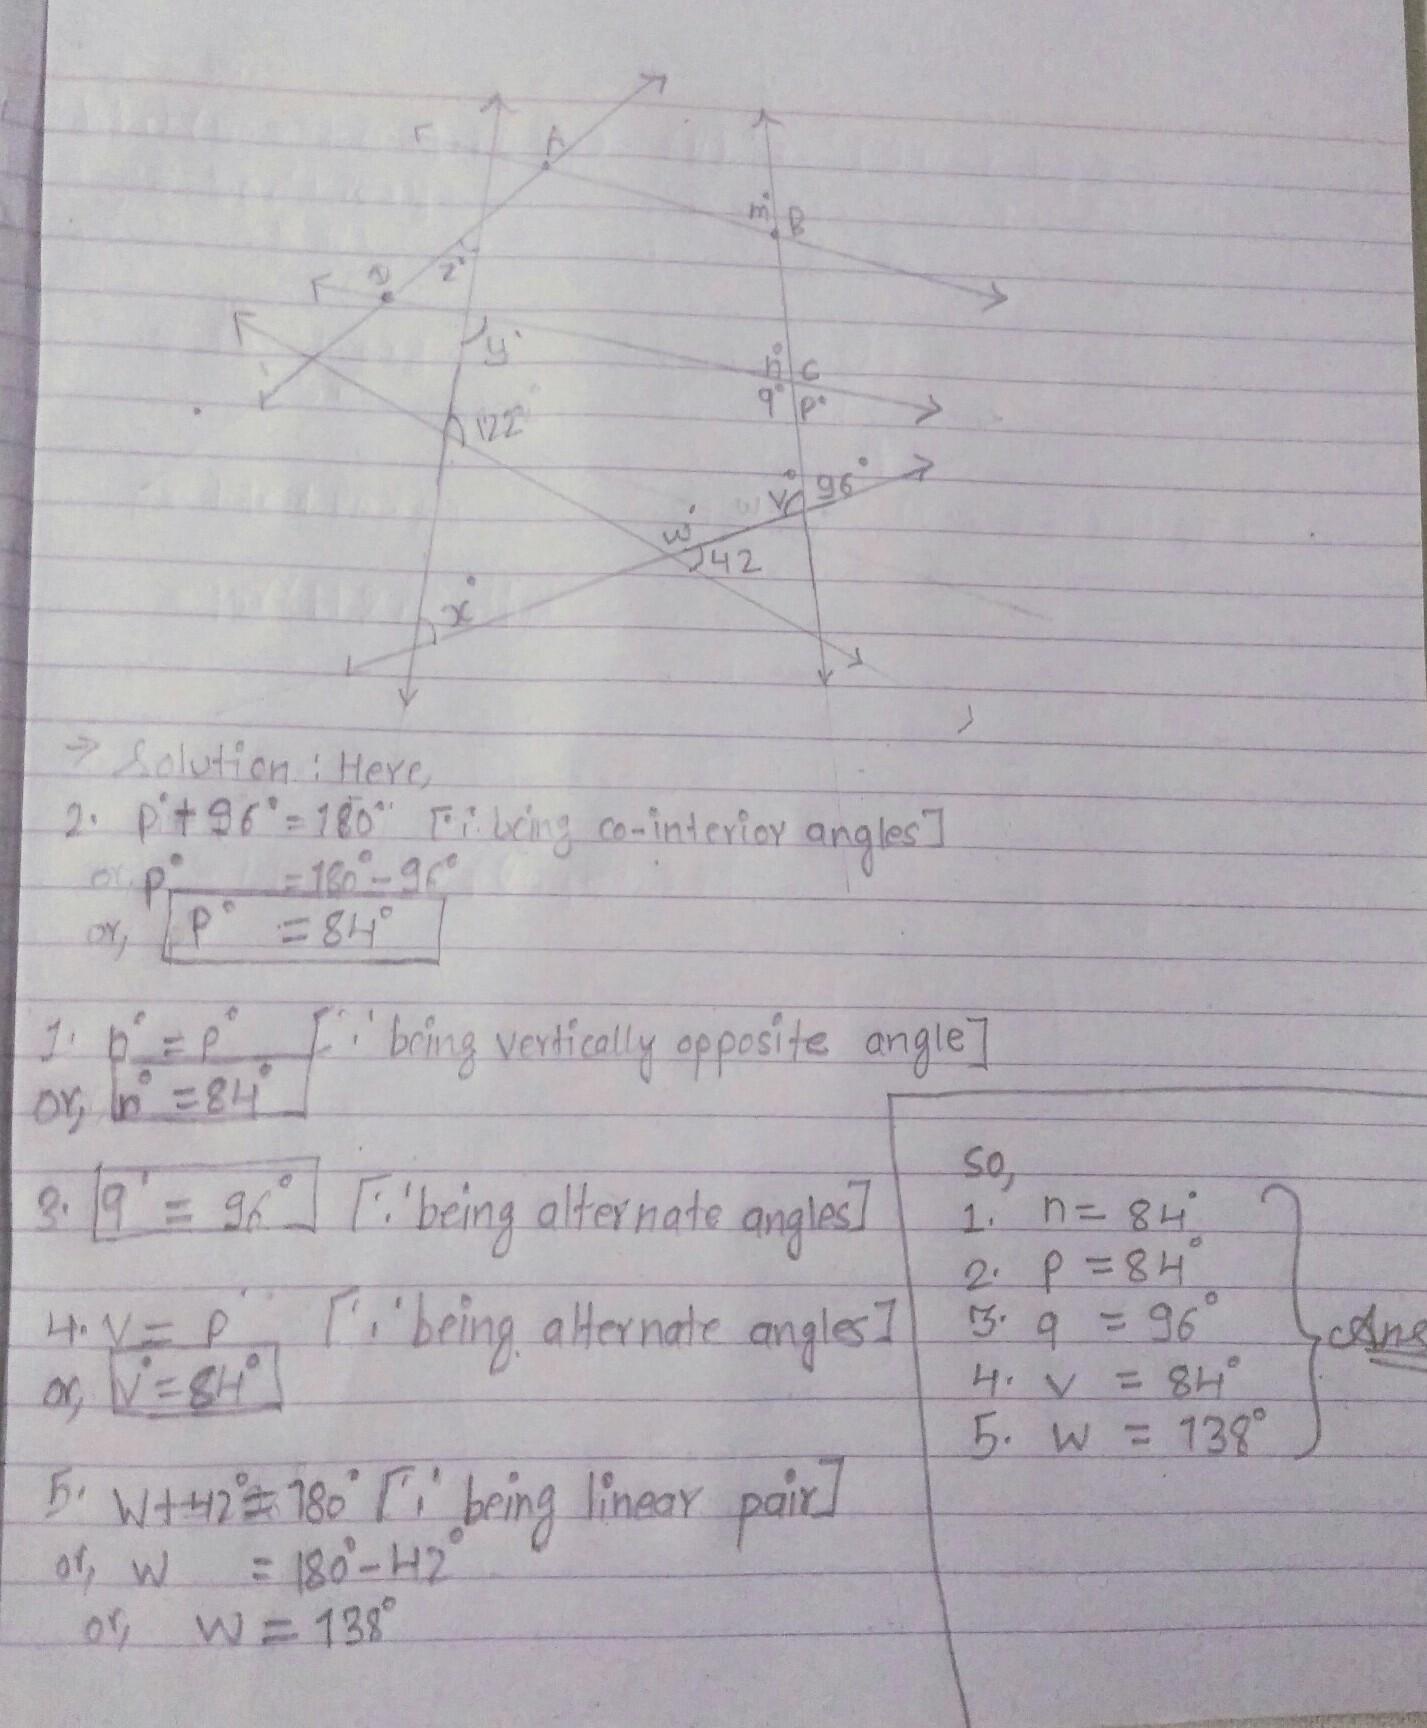 A
m° B
z°
D
y°
n° C
q° p°
122°
v° 96°
w°
42
x°
→ Solution : Here,
2. p°+96°=180° [∵ being co-interior angles]
or, p° =180°-96°
or, p° =84°
1. n° = p° [∵ being vertically opposite angle]
or, n° =84°
3. q° = 96° [∵ being alternate angles]
4. v = p [∵ being alternate angles]
or, v° =84°
5. w+42°=180° [∵ being linear pair]
or, w =180°-42°
or, w = 138°
so,
1. n = 84°
2. p =84°
3. q = 96°
4. v = 84°
5. w = 138°
Ans